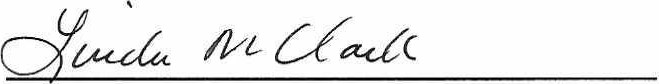 Linda M Clark